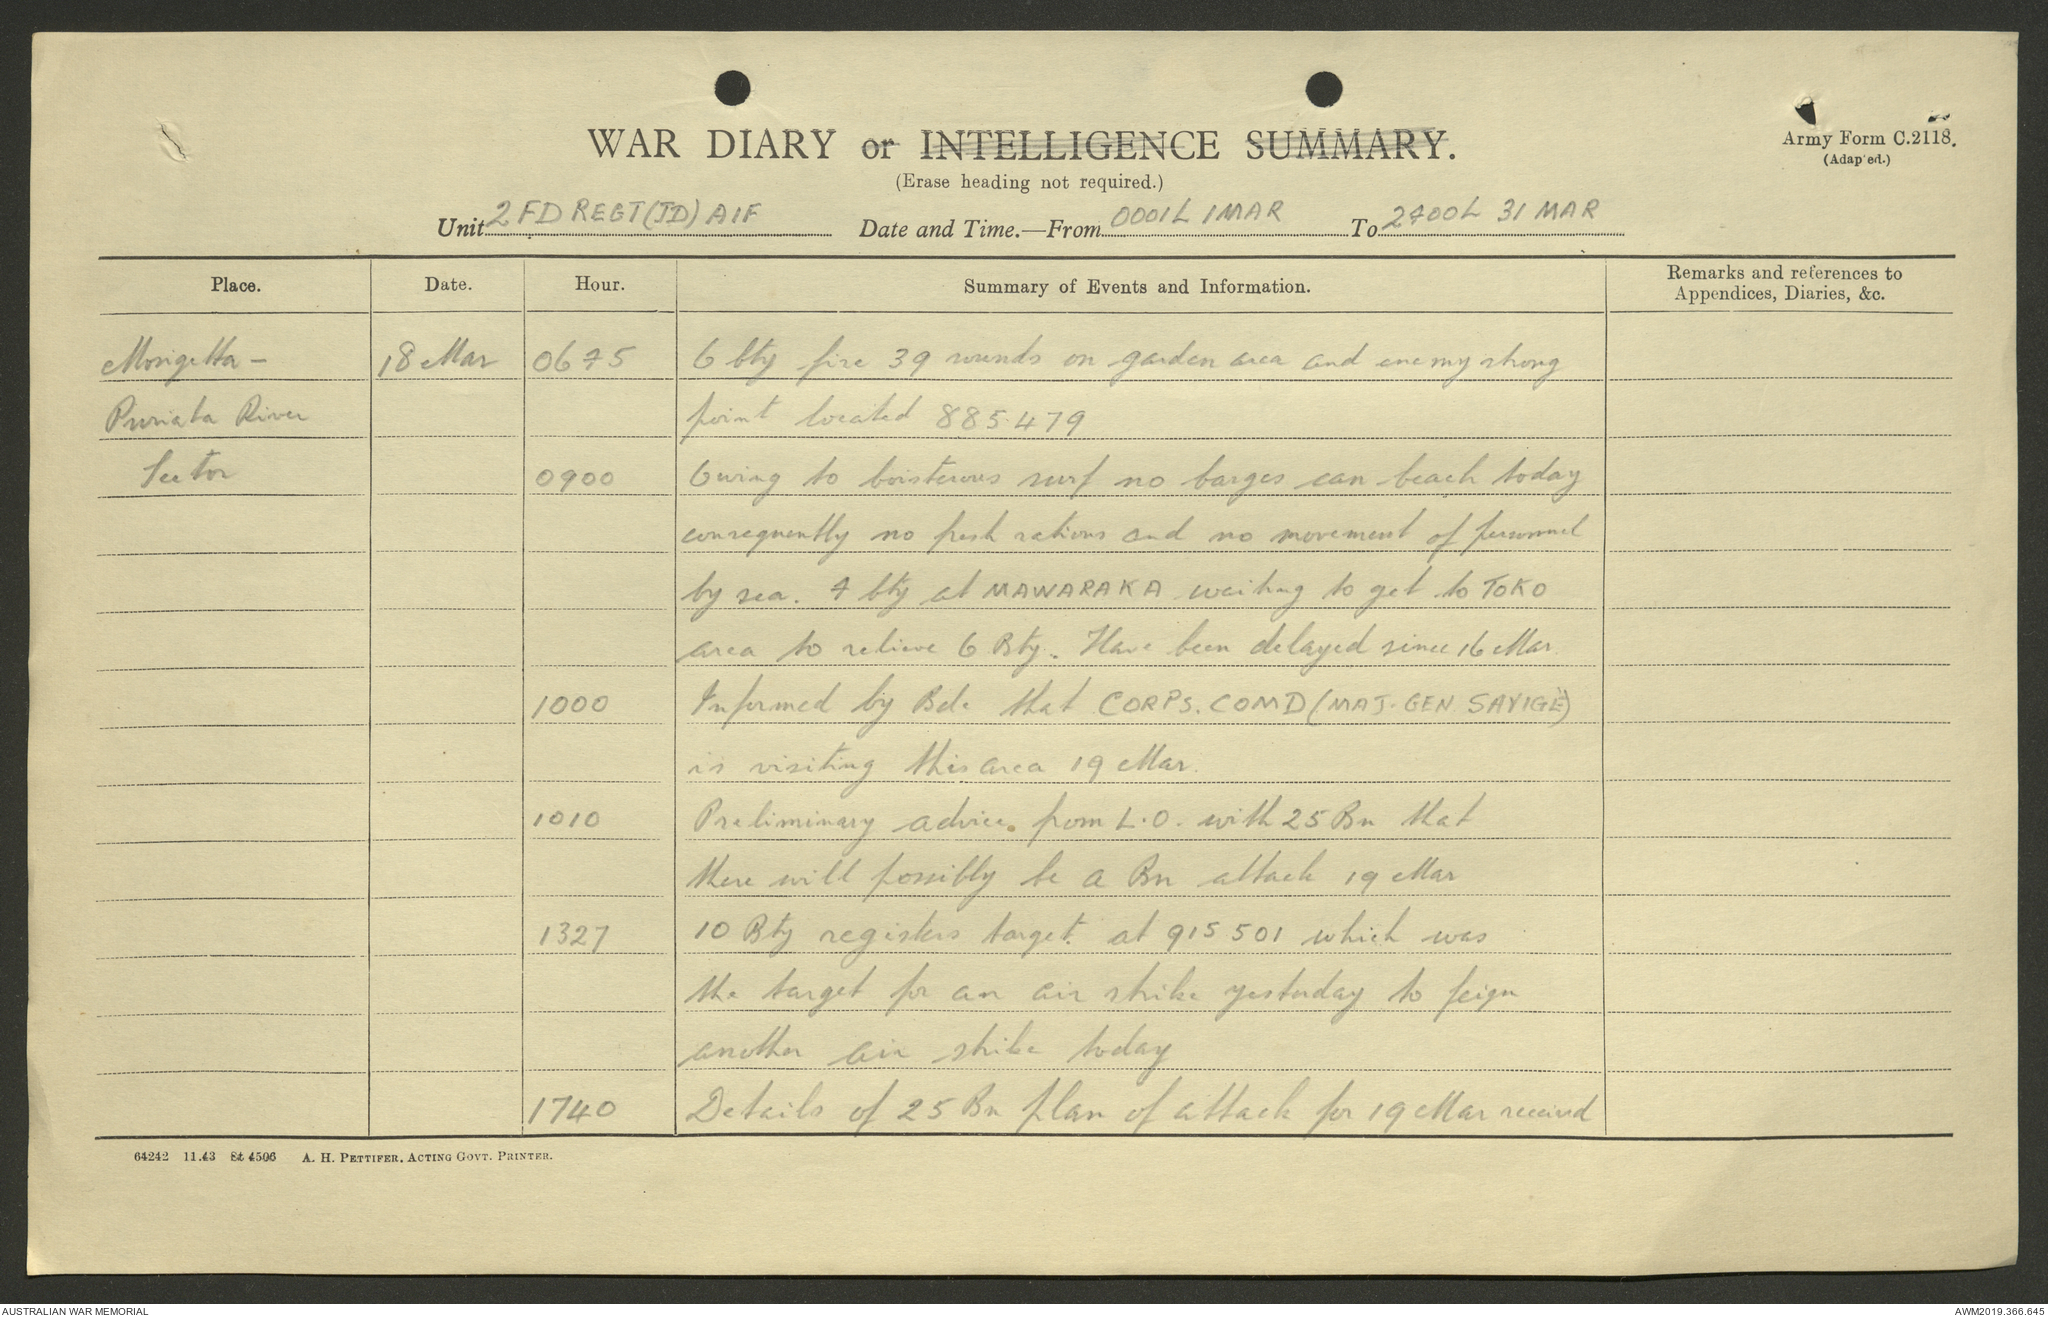 WAR DIARY or INTELLIGENCE SUMMARY.
(Erase heading not required.)
Army Form C.2118.
(Adapted.)
Unit 2 FD REGT (JD) AIF Date and Time.—From 0001L 1 MAR To 2400L 31 MAR
Place. Date. Hour. Summary of Events and Information. Remarks and references to
Appendices, Diaries, &c.
Mosigetta - 18 Mar 0645 6 bty fire 39 rounds on garden area and enemy strong
Puriata River point located 885.479
Sector 0900 Owing to boisterous surf no barges can beach today
consequently no fresh rations and no movement of personnel
by sea. 4 bty at MAWARAKA waiting to get to TOKO
area to relieve 6 Bty. Have been delayed since 16 Mar.
1000 Informed by Bde that CORPS. COMD (MAJ-GEN SAVIGE)
is visiting this area 19 Mar.
1010 Preliminary advice from L.O. with 25 Bn that
there will possibly be a Bn attack 19 Mar
1327 10 Bty registers target at 915501 which was
the target for an air strike yesterday to feign
another air strike today
1740 Details of 25 Bn plan of attack for 19 Mar received
64242 11.43 St 4506 A. H. PETTIFER, ACTING GOVT. PRINTER.
AUSTRALIAN WAR MEMORIAL
AWM2019.366.645